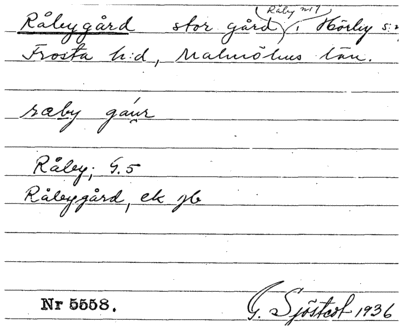 Råbygård stor gård (Råby nr 1) i Hörby s:n
Frosta h:d, Malmöhus län.
ræby gáur
Råby; G. 5
Råbygård, ek jb
Nr 5558.
G. Sjöstedt 1936